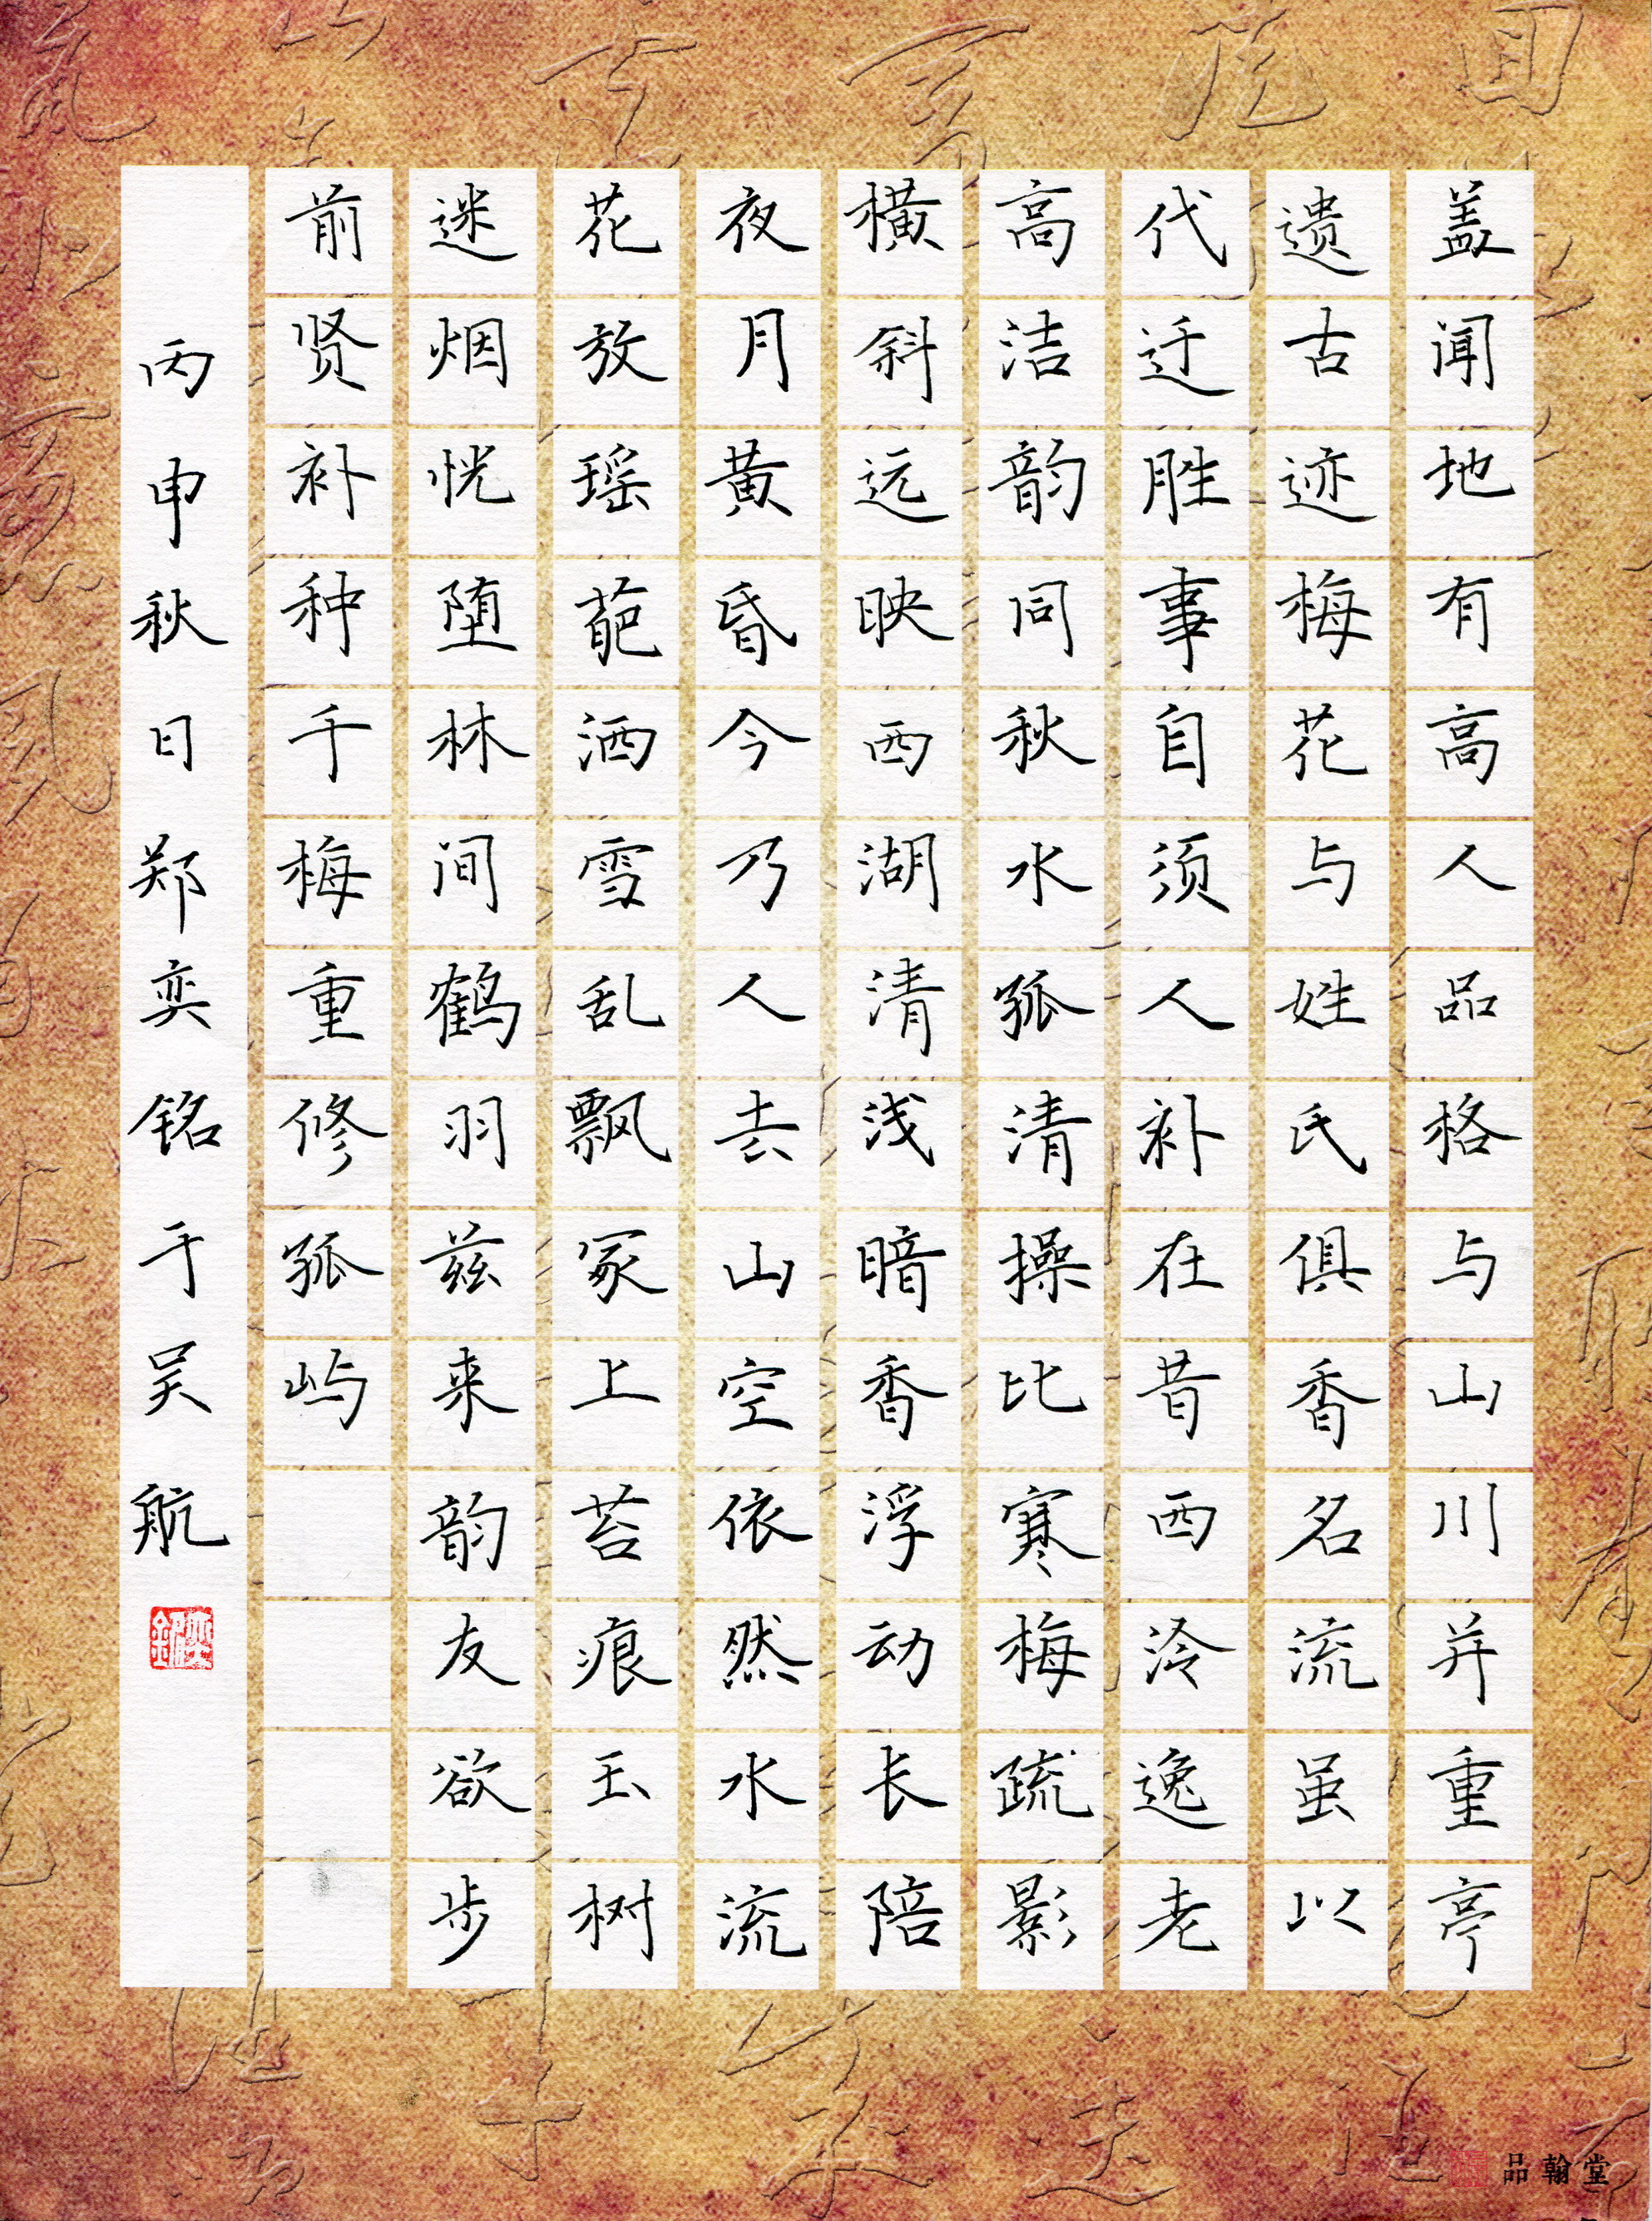 盖闻地有高人品格与山川并重亭
遗古迹梅花与姓氏俱香名流虽以
代迁胜事自须人补在昔西泠逸老
高洁韵同秋水孤清操比寒梅疏影
横斜远映西湖清浅暗香浮动长陪
夜月黄昏今乃人去山空依然水流
花放瑶葩洒雪乱飘冢上苔痕玉树
迷烟恍堕林间鹤羽兹来韵友欲步
前贤补种千梅重修孤屿
丙申秋日郑奕铭于吴航
奕铭
品翰堂